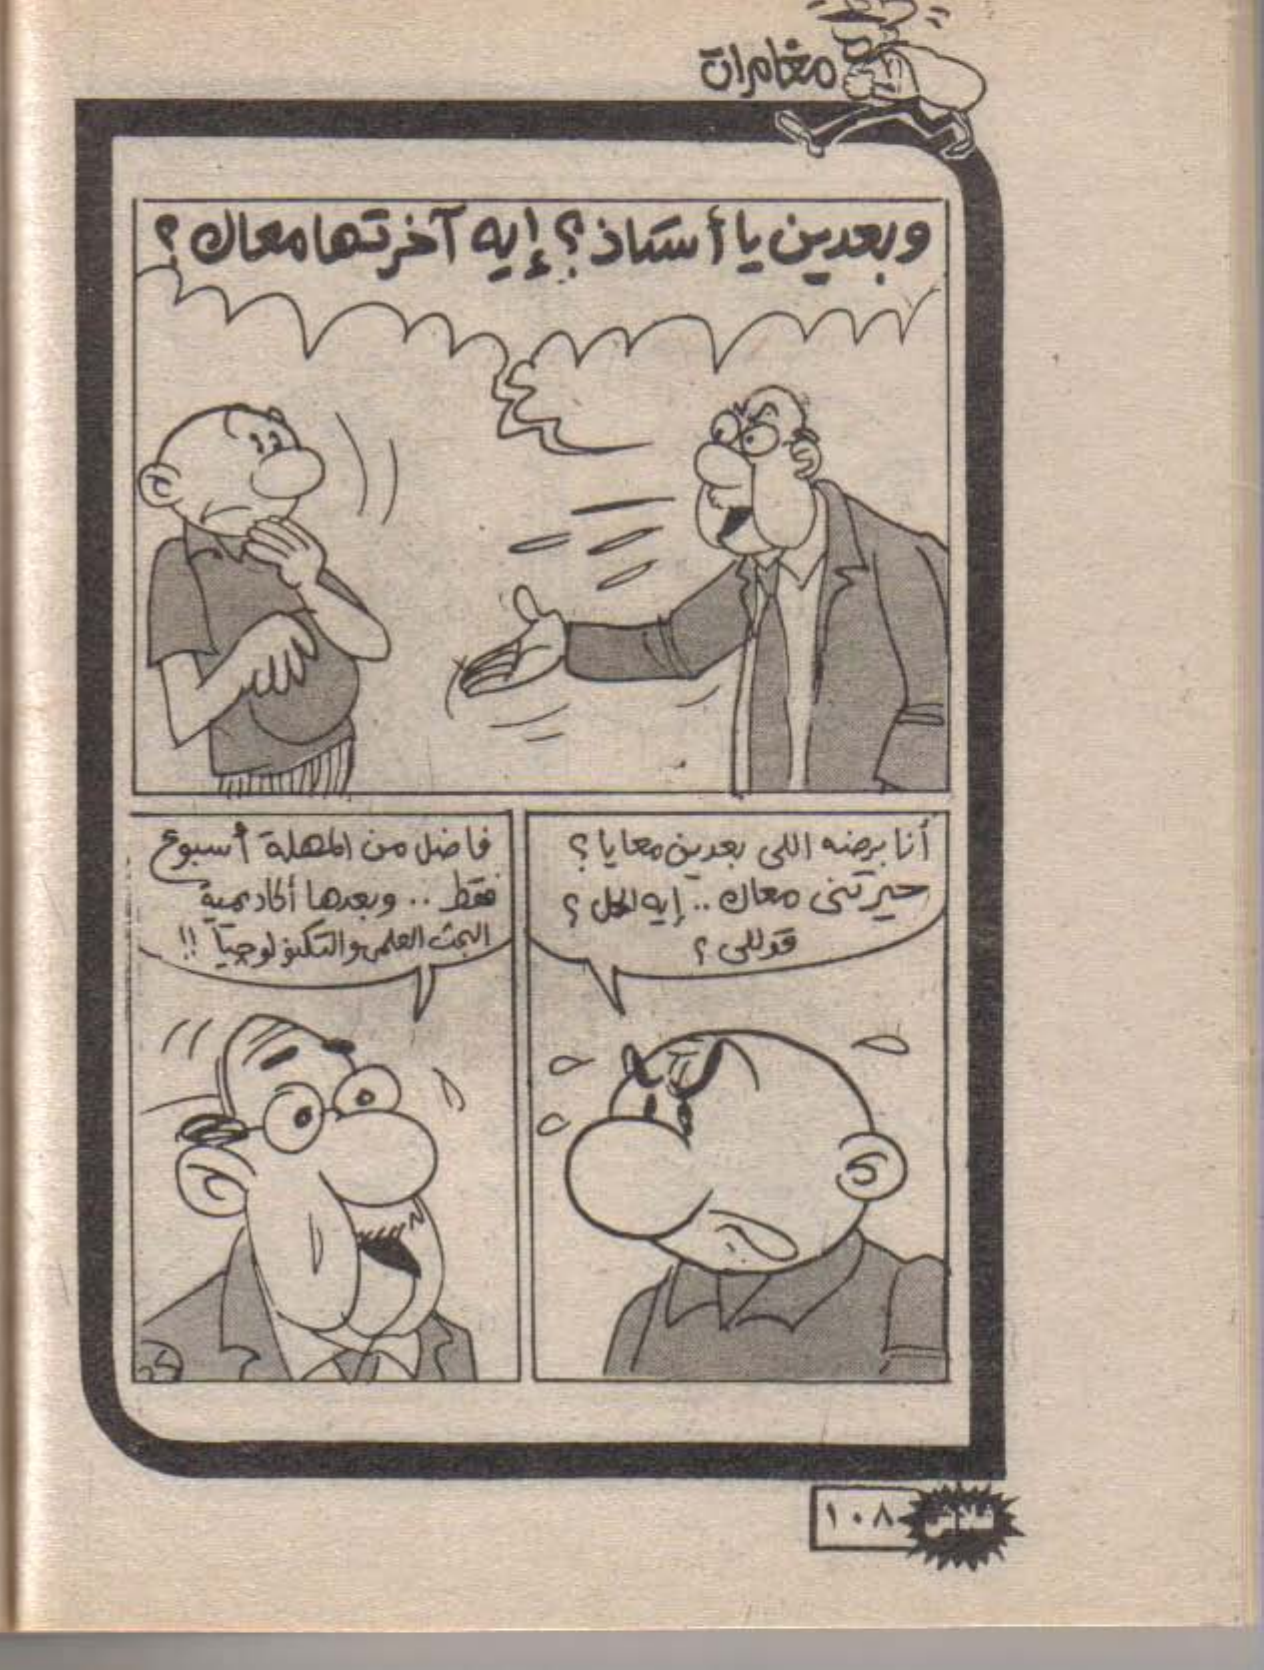 مغامرات
وبعدين يا أستاذ؟ إيه آخرتها معاك؟
أنا برضه اللى بعدين معايا؟
حيرتنى معاك .. إيه الحل؟
قوللى؟
فاضل من المهلة أسبوع
فقط .. وبعدها أكاديمية
البحث العلمى والتكنولوجيا !!
١٠٨
فلاش